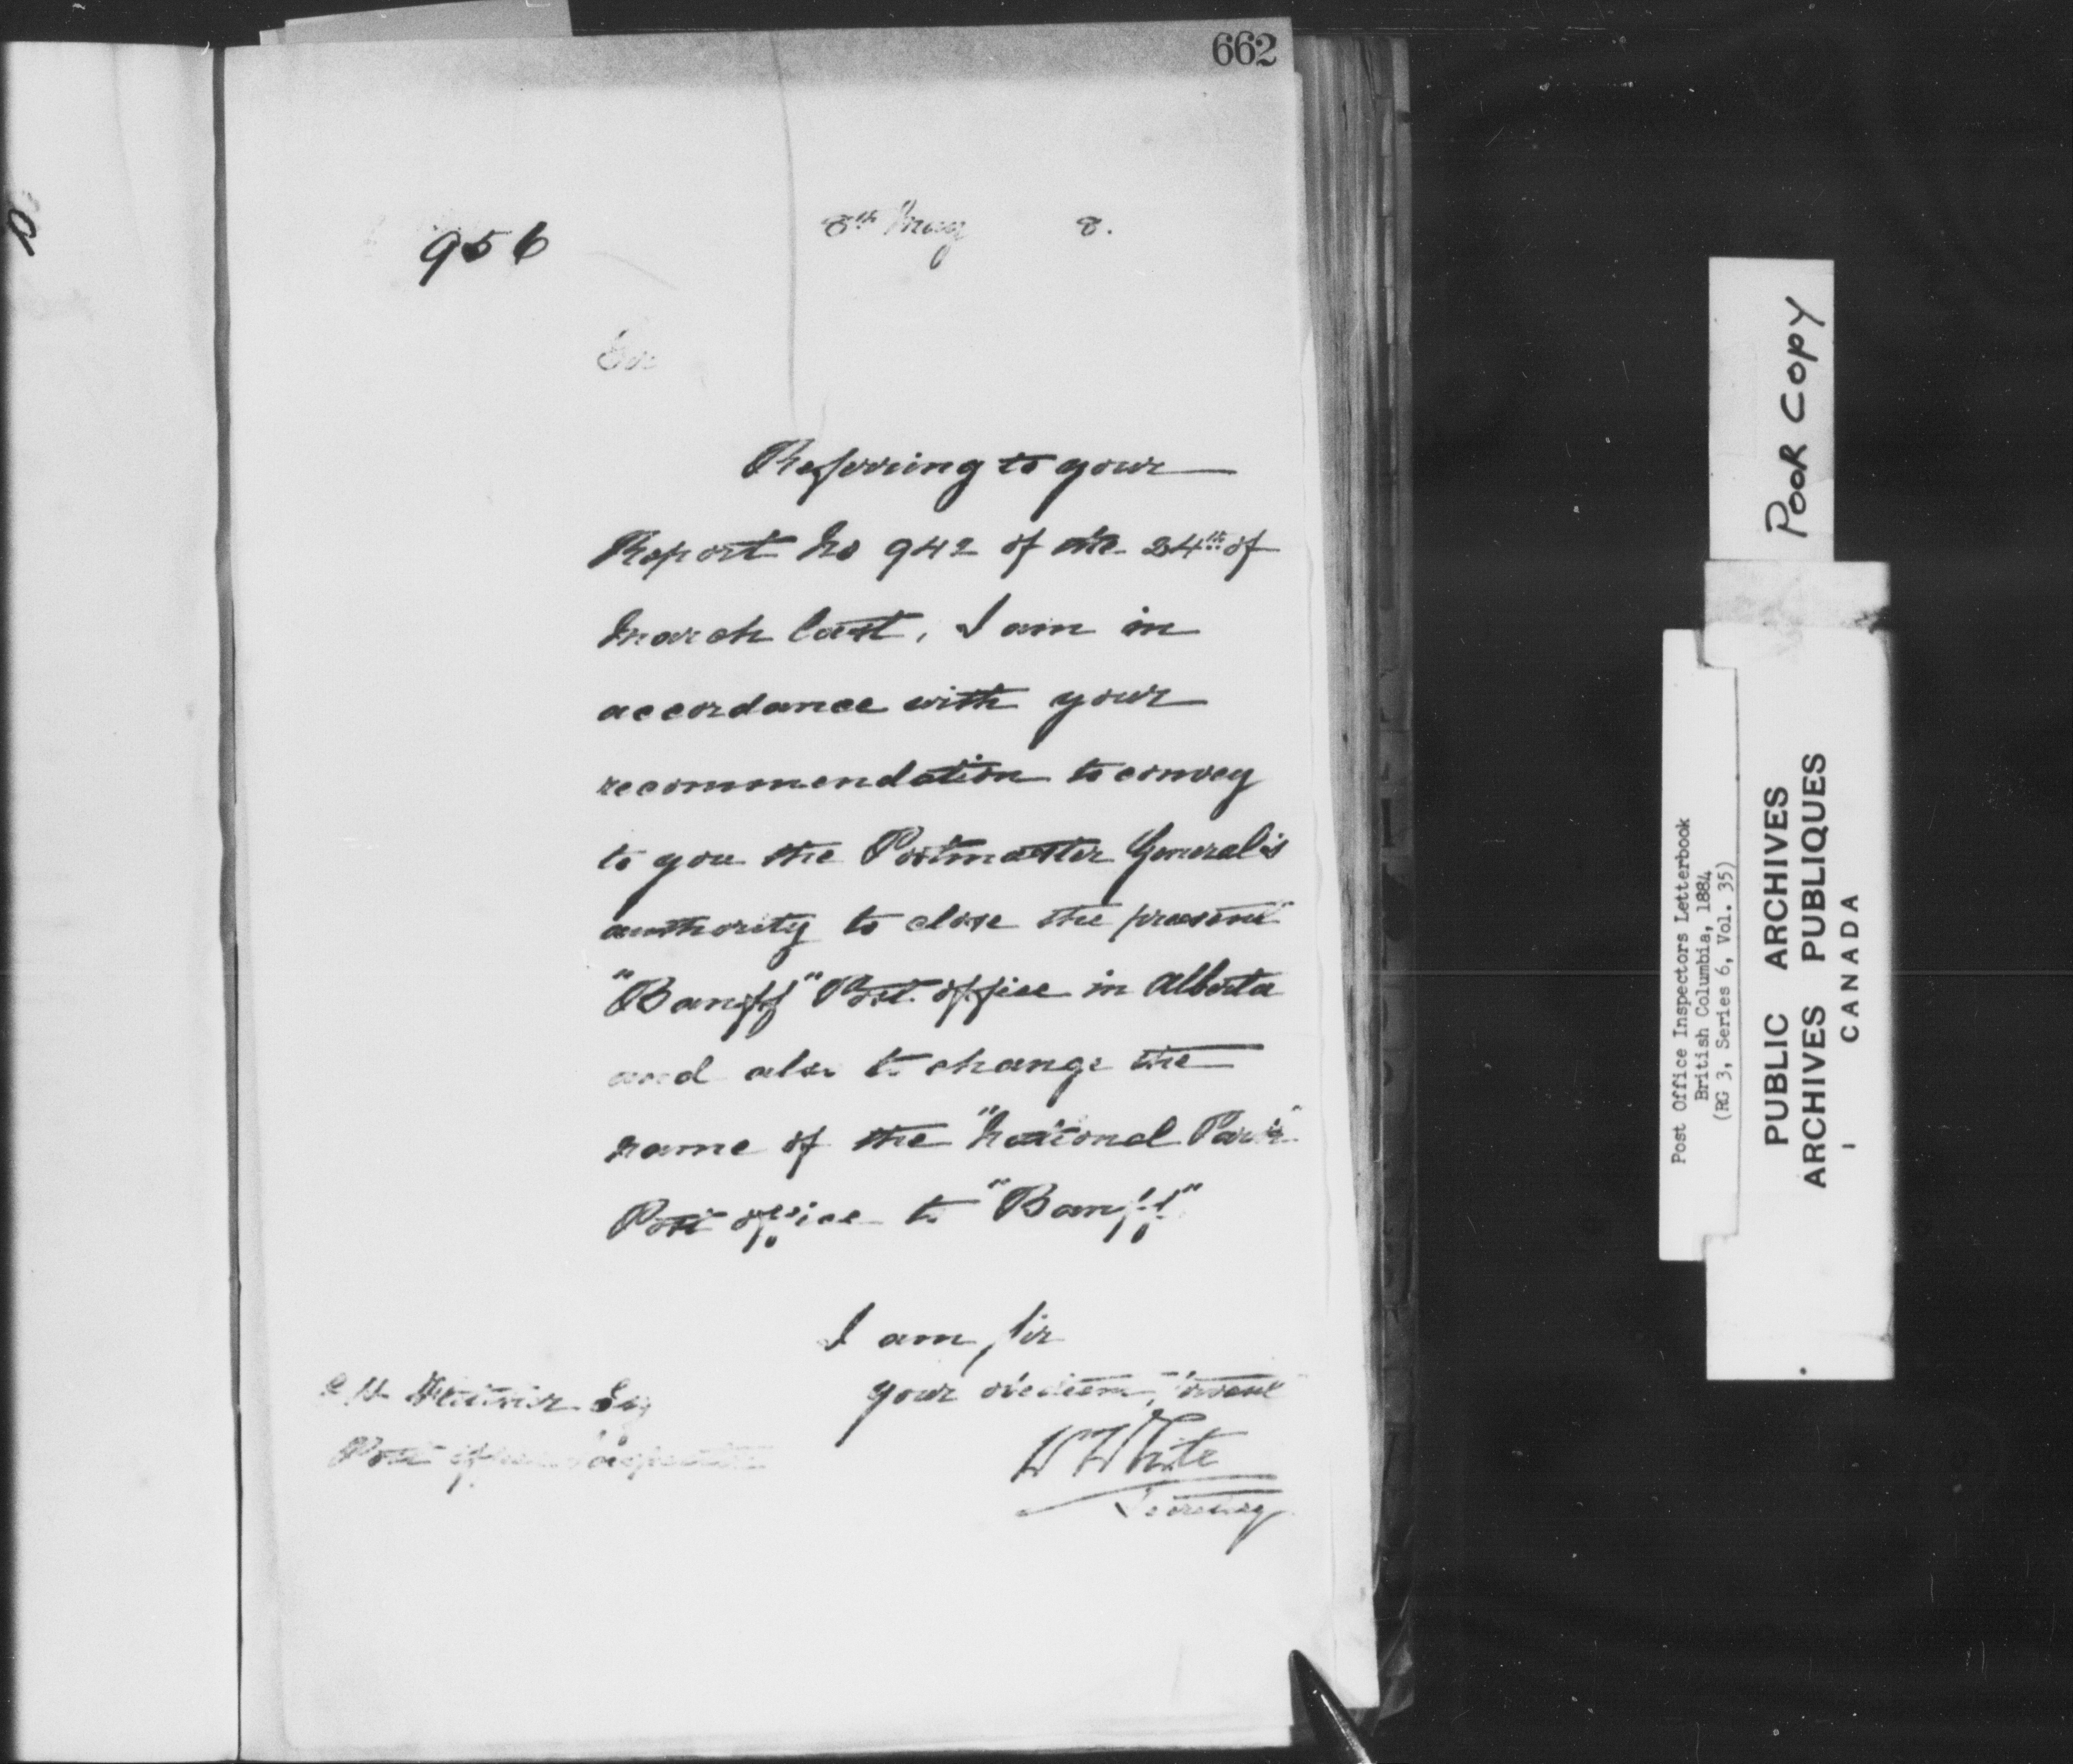 662
956
8th May 8.
Sir
Referring to your
Report No 942 of the 24th of
March last, I am in
accordance with your
recommendation to convey
to you the Postmaster General's
authority to close the present
"Banff" Post office in Alberta
and also to change the
name of the "National Park"
Post office to "Banff"
I am, Sir
Your obedient servant
W White
Secretary
Esq
Post office Inspector
POOR COPY
Post Office Inspectors Letterbook
British Columbia, 1884
(RG 3, Series 6, Vol. 35)
PUBLIC ARCHIVES
ARCHIVES PUBLIQUES
CANADA